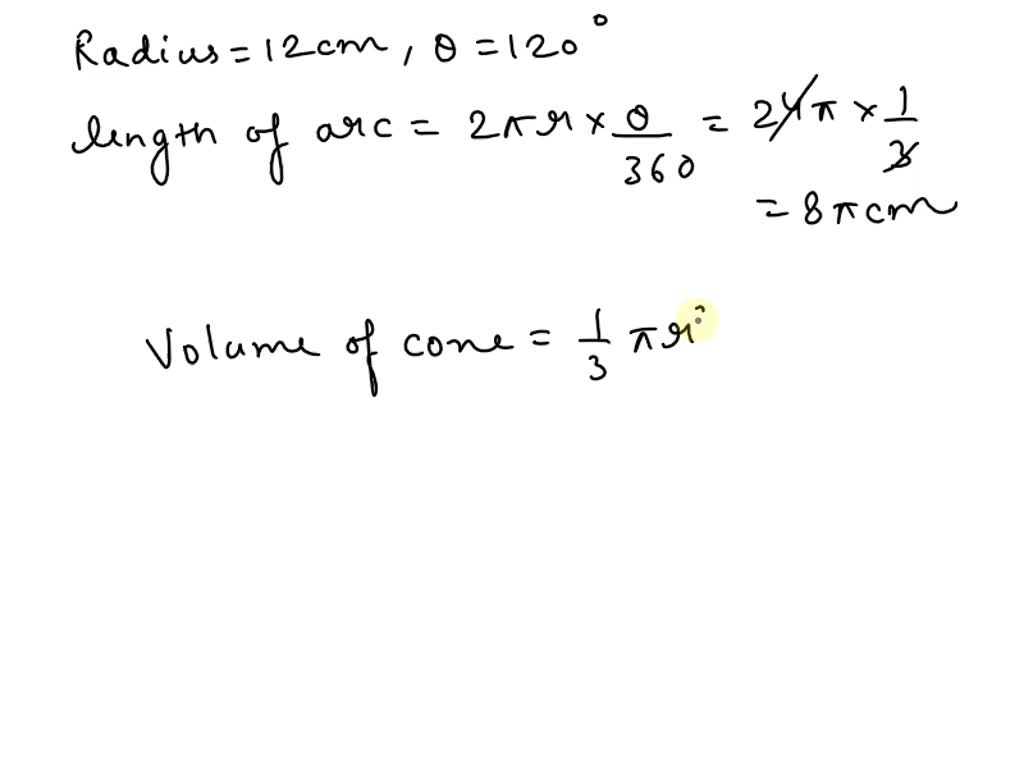 Radius = 12cm, θ = 120°
length of arc = 2πr × θ/360 = 24π × 1/3
= 8πcm
Volume of cone = 1/3 πr²